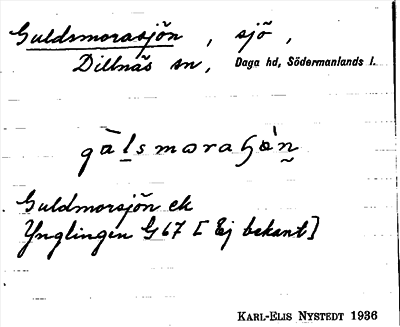 Guldsmorasjön, sjö,
Dillnäs sn, Daga hd, Södermanlands l.
Guldmorsjön ek
Ynglingen G 67 [Ej bekant]
KARL-ELIS NYSTEDT 1936